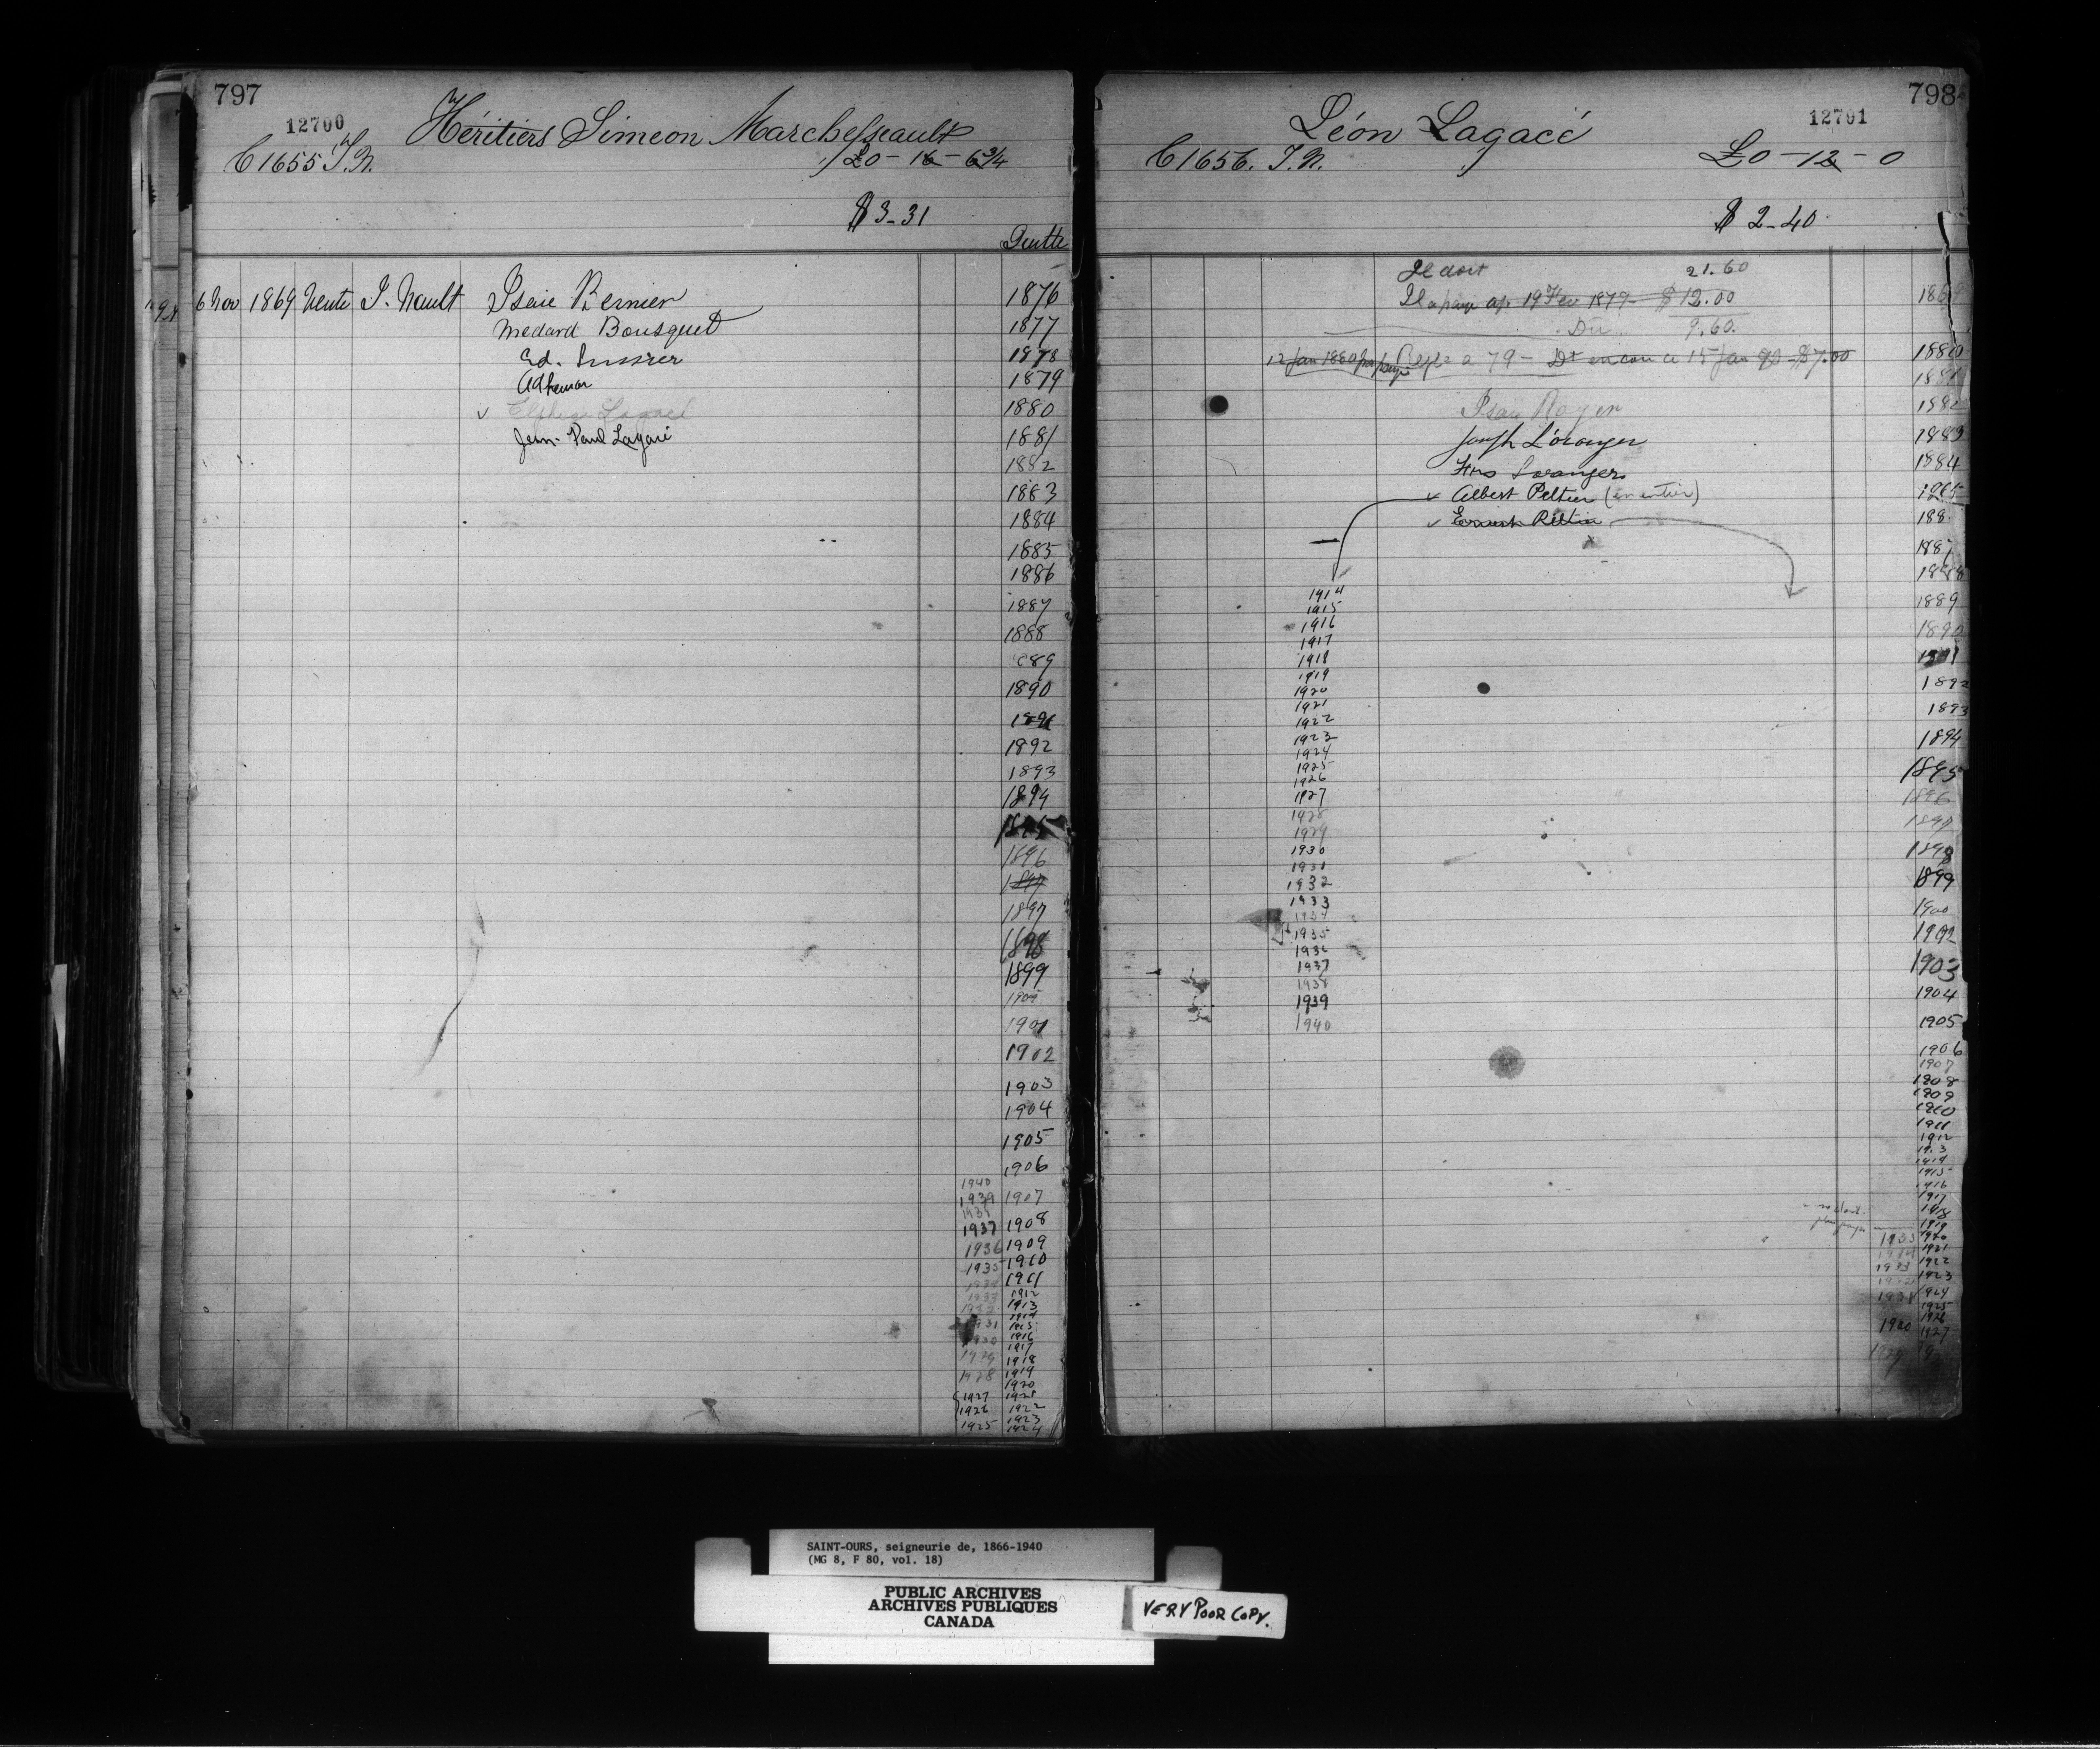 797
12700
Héritiers Simeon Marchesseault
C1655 T.N.
£0-16-6¾
$3-31
Quitte
6 Nov 1869 Vente J. Nault Isaie Bernier 1876
Medard Bousquet 1877
Ed. Lussier 1878
Adhemar 1879
Elphege Lagacé 1880
Jean-Paul Lagacé 1881
1882
1883
1884
1885
1886
1887
1888
1889
1890
1891
1892
1893
1894
1895
1896
1897
1897
1898
1899
1901
1902
1903
1904
1905
1906
1940
1939 1907
1938
1937 1908
1936 1909
1935 1910
1911
1933 1912
1932 1913
1931 1914
1915
1930 1916
1917
1929 1918
1928 1919
1920
1927 1921
1926 1922
1925 1923
1924
798
12701
Léon Lagacé
C1656. T.N.
£0-12-0
$2-40
Il doit 21.60
Il a payé 19 Fev 1879 $12.00
Du 9.60.
12 Jan 1880 payé 79 - Dt encore ce 15 Jan $7.00 1880
1881
Isaie Royer 1882
Joseph L'oranger 1883
Frs Loranger 1884
Albert Peltier (en entier)
Ernest Peltier 188
1887
1888
1889
1890
1891
1892
1893
1894
1895
1896
1897
1898
1899
1900
1902
1903
1904
1905
1906
1907
1908
1909
1910
1911
1912
1913
1914
1915
1916
1917
1918
1919
1920
1921
1922
1923
1924
1925
1926
1927
1914
1915
1916
1917
1918
1919
1920
1921
1922
1923
1924
1925
1926
1927
1928
1929
1930
1931
1932
1933
1934
1935
1936
1937
1938
1939
1940
SAINT-OURS, seigneurie de, 1866-1940
(MG 8, F 80, vol. 18)
PUBLIC ARCHIVES
ARCHIVES PUBLIQUES
CANADA
VERY POOR COPY.